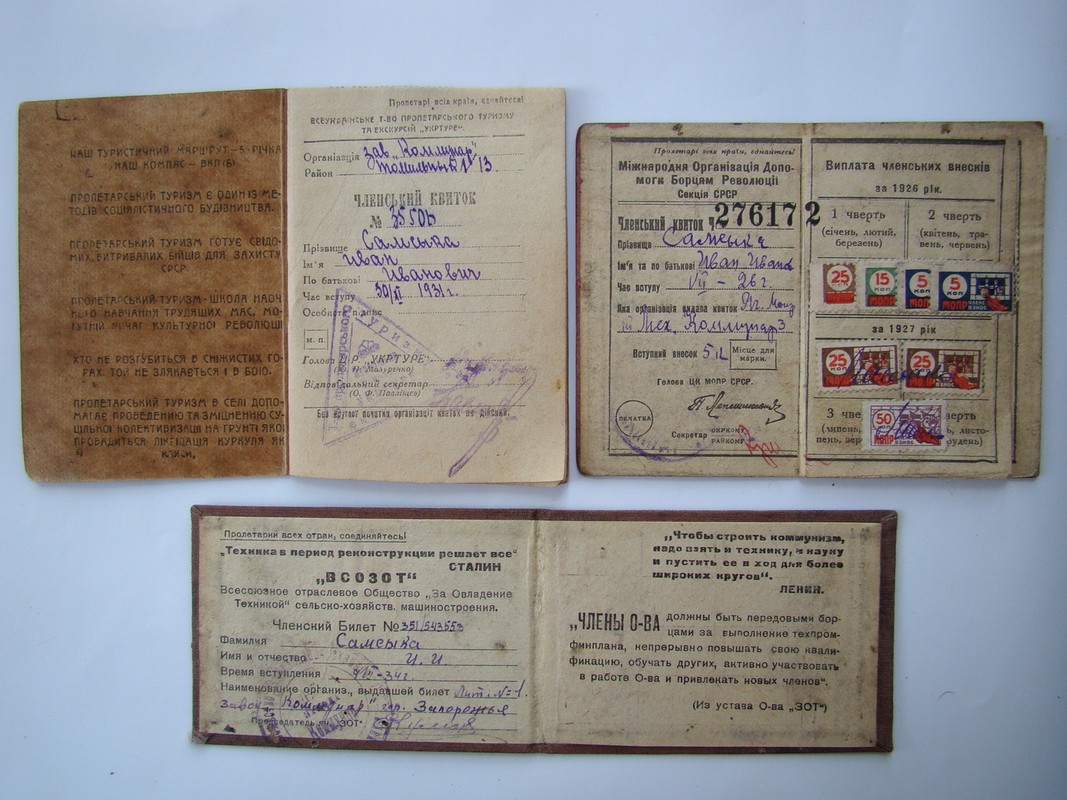 НАШ ТУРИСТИЧНИЙ МАРШРУТ - 5-РІЧКА
НАШ КОМПАС - ВКП(Б)
ПРОЛЕТАРСЬКИЙ ТУРИЗМ Є ОДИН ІЗ МЕ-
ТОДІВ СОЦІЯЛІСТИЧНОГО БУДІВНИЦТВА.
ПРОЛЕТАРСЬКИЙ ТУРИЗМ ГОТУЄ СВІДО-
МИХ, ВИТРИВАЛИХ БІЙЦІВ ДЛЯ ЗАХИСТУ
СРСР.
ПРОЛЕТАРСЬКИЙ ТУРИЗМ - ШКОЛА НАОЧ-
НОГО НАВЧАННЯ ТРУДЯЩИХ МАС, МО-
ГУТНІЙ РИЧАГ КУЛЬТУРНОЇ РЕВОЛЮЦІЇ
ХТО НЕ РОЗГУБИТЬСЯ В СНІЖИСТИХ ГО-
РАХ, ТОЙ НЕ ЗЛЯКАЄТЬСЯ І В БОЮ.
ПРОЛЕТАРСЬКИЙ ТУРИЗМ В СЕЛІ ДОПО-
МАГАЄ ПРОВЕДЕННЮ ТА ЗМІЦНЕННЮ СУ-
ЦІЛЬНОЇ КОЛЕКТИВІЗАЦІЇ НА ҐРУНТІ ЯКОЇ
ПРОВАДИТЬСЯ ЛІКВІДАЦІЯ КУРКУЛЯ ЯК
КЛЯСИ.
Пролетарі всіх країн, єднайтеся!
ВСЕУКРАЇНСЬКЕ Т-ВО ПРОЛЕТАРСЬКОГО ТУРИЗМУ
ТА ЕКСКУРСІЙ „УКРТУРЕ".
Організація зав. „Коммунар"
Район 13
ЧЛЕНСЬКИЙ КВИТОК
№ 35506
Прізвище Самсыка
Ім'я Иван
По батькові Иванович
Час вступу 30/XI 1931г.
Особистий підпис
м. п.
Голова ЦПР. „УКРТУРЕ"
(О. П. Мазуренко)
Відповідальний секретар
(О. Ф. Павліщев)
Без круглої печатки організації квиток не дійсний.
Пролетарі всіх країн, єднайтесь!
Міжнародня Організація Допо-
моги Борцям Революції
Секція СРСР
Членський квиток Ч 276172
Прізвище Самсыка
Ім'я та по батькові Иван Иванов
Час вступу VII - 26 г.
Яка організація видала квиток
Мех. Коммунар 3
Вступний внесок 5 к
Місце для
марки.
Голова ЦК МОПР СРСР.
ПЕЧАТКА
Секретар ОКРКОМУ
РАЙКОМУ
Виплата членських внесків
за 1926 рік.
1 чверть
(січень, лютий,
березень)
2 чверть
(квітень, тра-
вень, червень)
25 КОП МОПР
15 КОП МОПР
5 КОП МОПР
5 КОП МОПР ЧЛЕНС. ВЗНОС
за 1927 рік
25 КОП МОПР
25 КОП МОПР
50 КОП МОПР
3 чве
(липень,
пень, вер
верть
, листо-
рудень)
Пролетарии всех стран, соединяйтесь!
„Техника в период реконструкции решает все"
СТАЛИН
„ВСОЗОТ"
Всесоюзное отраслевое Общество „За Овладение
Техникой" сельско-хозяйств. машиностроения.
Членский Билет № 351/543553
Фамилия Самсыка
Имя и отчество И. И.
Время вступления VIII-34г.
Наименование организ., выдавшей билет Лит. №-1.
Завод „Коммунар" гор. Запорожья
Председатель „ЗОТ"
„Чтобы строить коммунизм,
надо взять и технику, и науку
и пустить ее в ход для более
широких кругов".
ЛЕНИН.
„ЧЛЕНЫ О-ВА должны быть передовыми бор-
цами за выполнение техпром-
финплана, непрерывно повышать свою квали-
фикацию, обучать других, активно участвовать
в работе О-ва и привлекать новых членов".
(Из устава О-ва „ЗОТ")